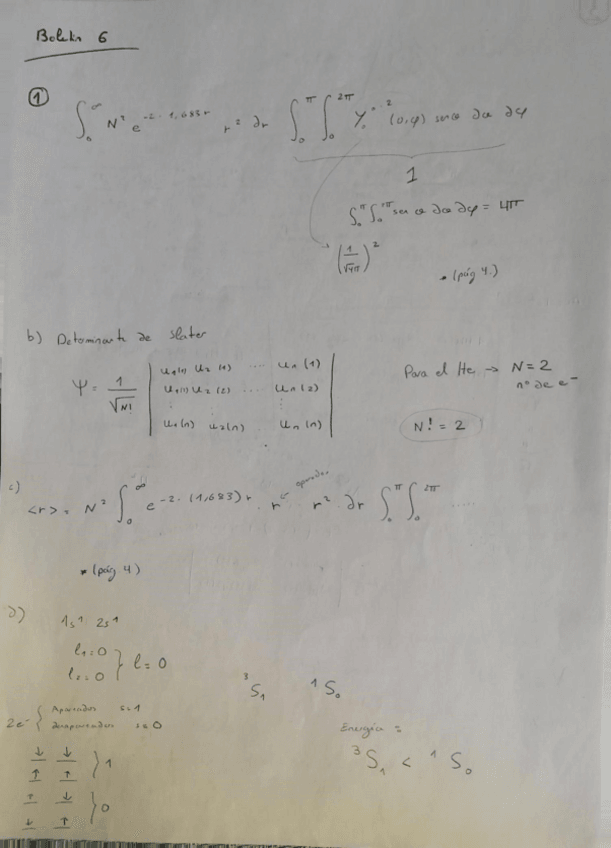 Boletín 6
① ∫₀^∞ N² e^(-2·1,683r) r² ∂r ∫₀^π ∫₀^2π Y₀⁰ ² (θ,φ) sen θ ∂θ ∂φ
1
∫₀^π ∫₀^2π sen θ ∂θ ∂φ = 4π
(1/√4π)²
• (pág 4.)
b) Determinante de slater
Ψ = 1/√N! | u₁(1) u₂(1) .... uₙ(1) |
| u₁(1) u₂(2) .... uₙ(2) |
| u₁(n) u₂(n) uₙ(n) |
Para el He → N = 2
nº de e⁻
N! = 2
c) operador
<r> = N² ∫₀^∞ e^(-2·(1,683)r) r r² ∂r ∫₀^π ∫₀^2π .....
* (pág 4)
d) 1s¹ 2s¹
l₁=0
l₂=0 } l=0
³S₁ ¹S₀
2e⁻ { Apareados s=1
desapareados s=0
Energía =
³S₁ < ¹S₀
↓ ↓
↑ ↑ } 1
↑ ↓
↓ ↑ } 0